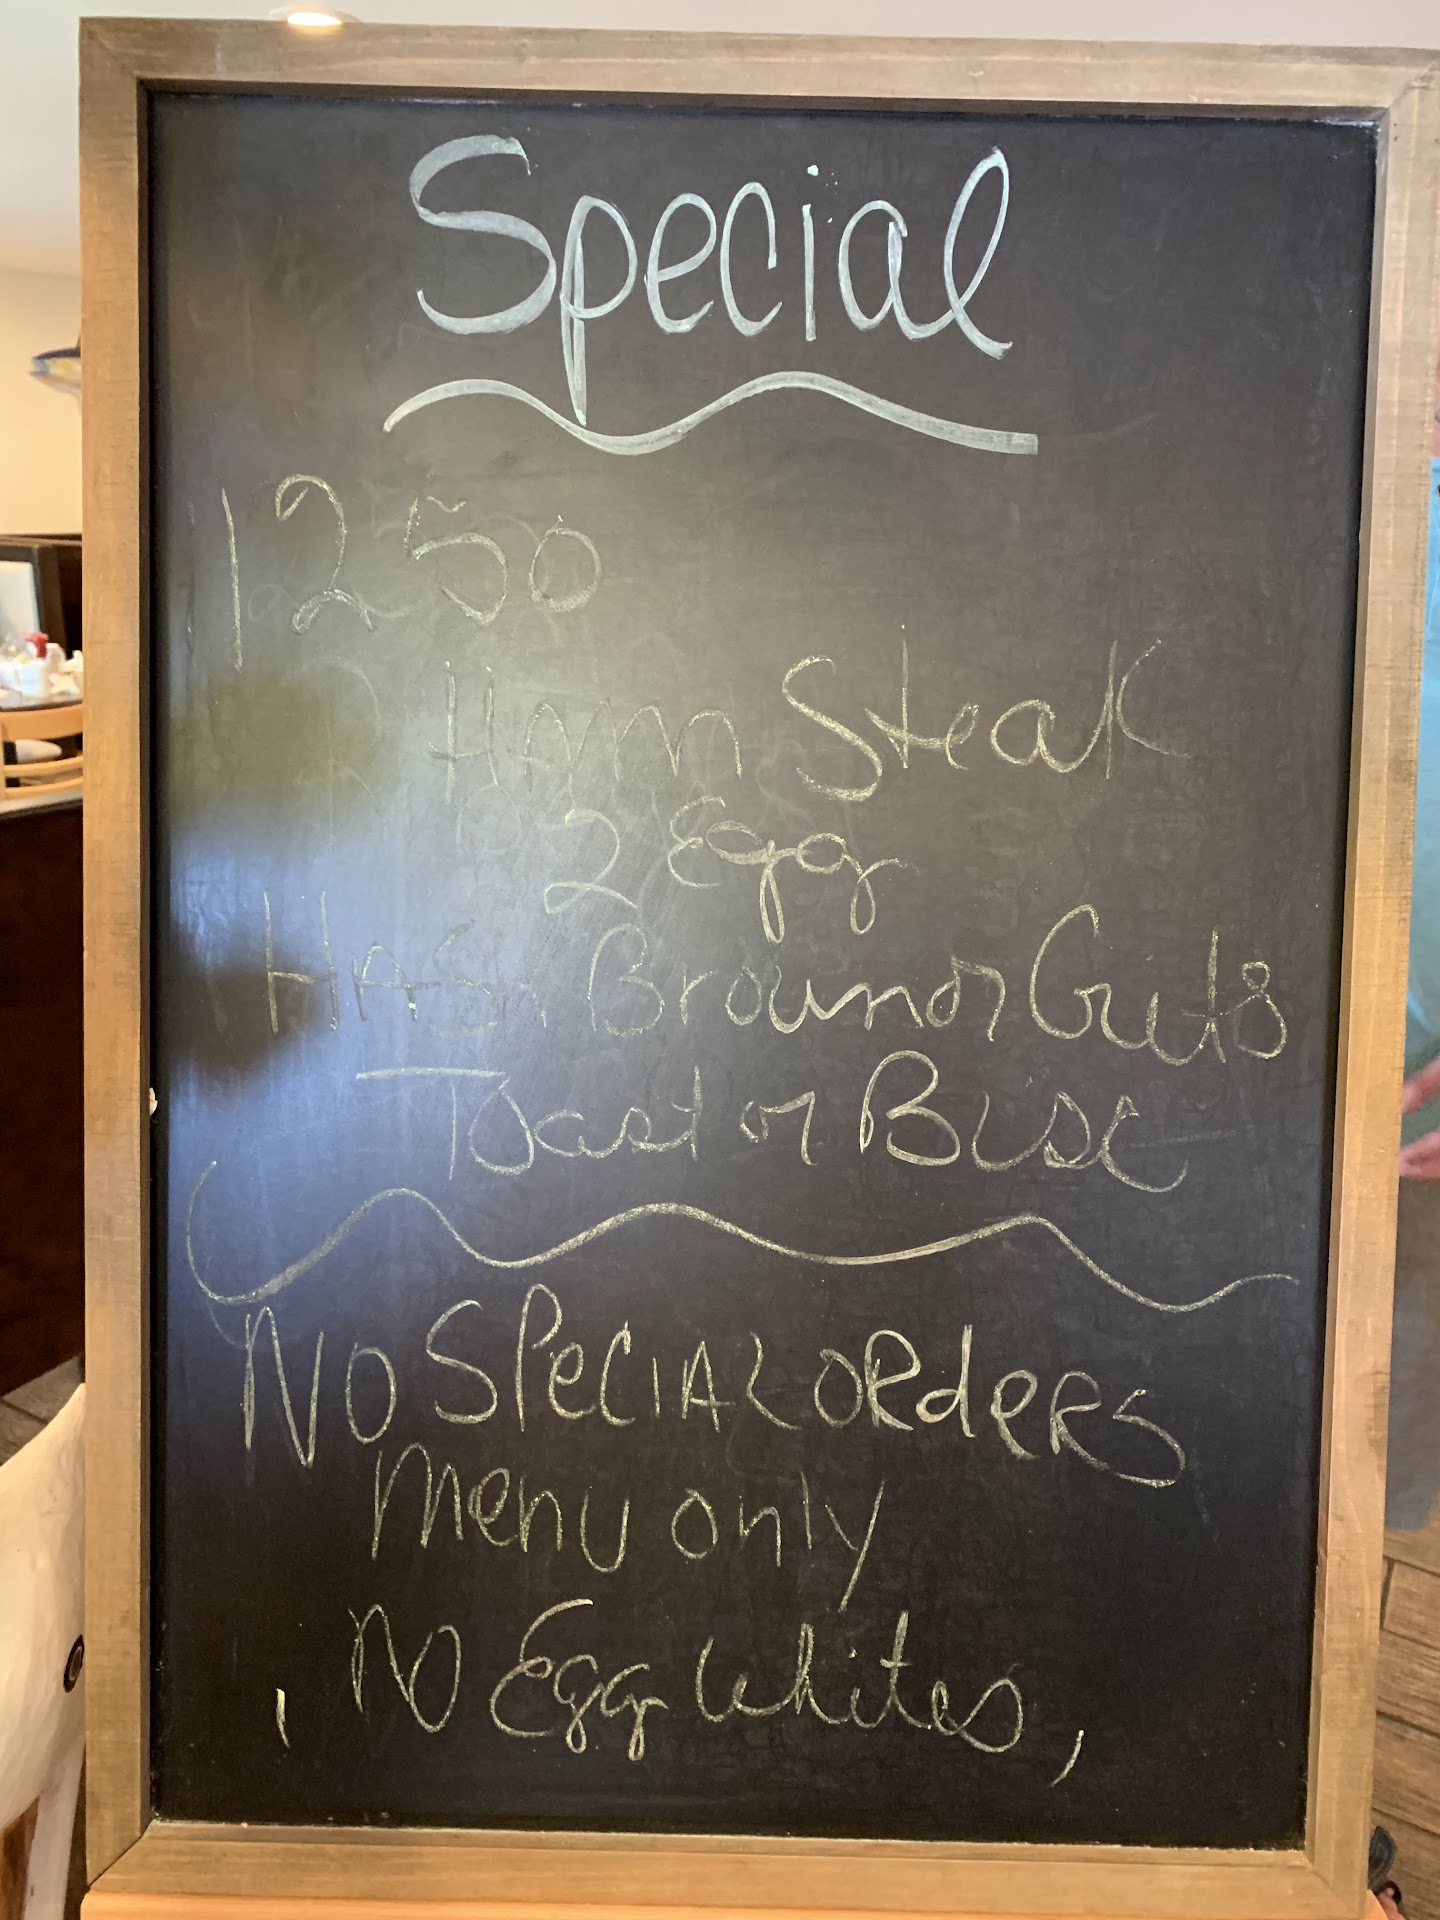 Special
1250
Ham Steak
2 Egg
HASh Brown or Gruts
Toast or Bisc
NO SPeCIAL ORdeRS
menu only
NO Egg whites,